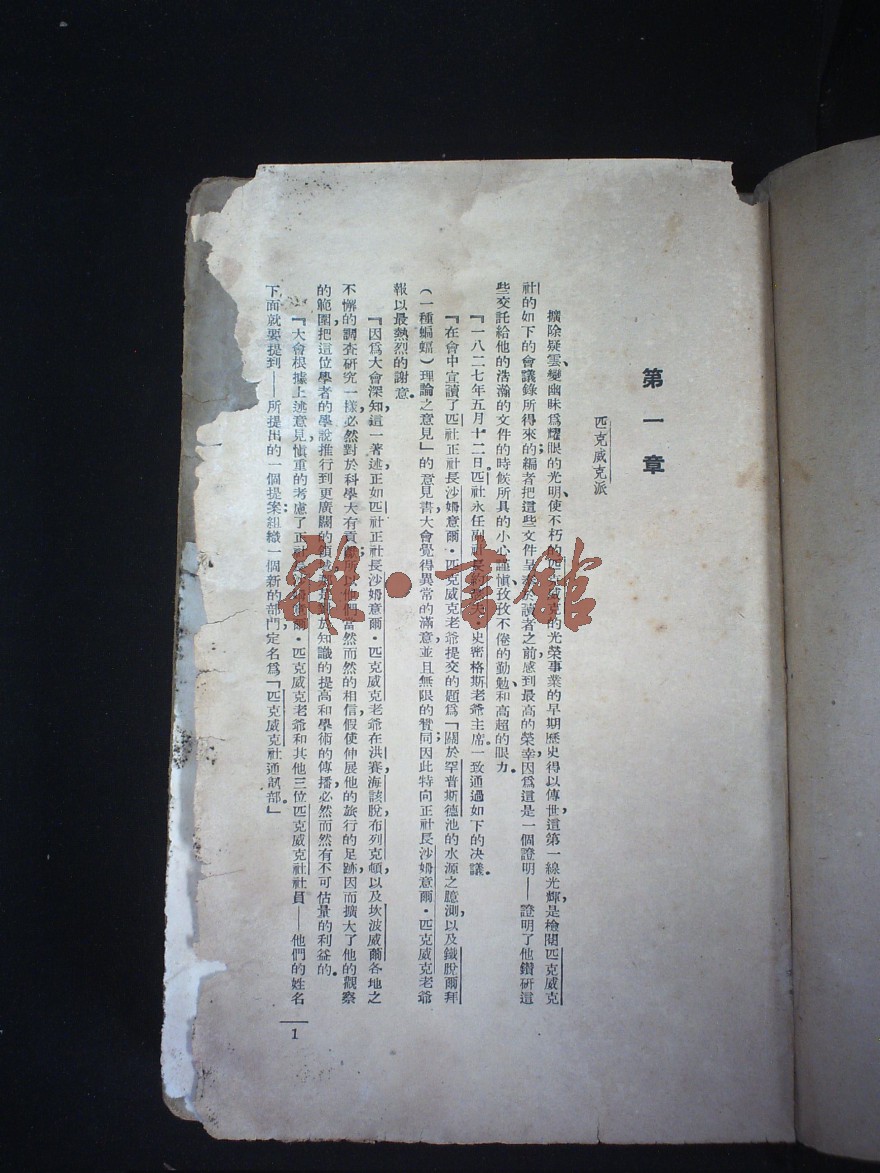 第一章
匹克威克派
擴除疑雲、變幽昧爲耀眼的光明、使不朽的匹克威克的光榮事業的早期歷史得以傳世這第一線光輝，是檢閱匹克威克
社的如下的會議錄所得來的；編者把這些文件呈 讀者之前，感到最高的榮幸，因爲這是一個證明——證明了他鑽研這
些交託給他的浩瀚的文件的時候所具的小心謹愼、孜孜不倦的勤勉、和高超的眼力。
『一八二七年五月十二日。匹社永任副社長 史密格斯老爺主席。一致通過如下的決議。
『在會中宣讀了匹社正社長沙姆意爾·匹克威克老爺提交的題爲「關於罕普斯德池的水源之臆測，以及鐵脫爾拜
（一種蝙蝠）理論之意見」的意見書，大會覺得異常的滿意，並且無限的贊同；因此特向正社長沙姆意爾·匹克威克老爺
報以最熱烈的謝意。
『因爲大會深知，這一著述，正如匹社正社長沙姆意爾·匹克威克老爺在洪賽、海該脫、布列克頓，以及坎波威爾各地之
不懈的調查研究一樣，必然對於科學大有貢獻；所以他們當然而然的相信，假使伸展他的旅行的足跡，因而擴大了他的觀察
的範圍，把這位學者的學說推行到更廣闊的領域 於知識的提高和學術的傳播，必然而然有不可估量的利益的。
『大會根據上述意見，愼重的考慮了正社長沙姆意爾·匹克威克老爺和其他三位匹克威克社社員——他們的姓名
下面就要提到——所提出的一個提案，組織一個新的部門，定名爲「匹克威克社通訊部。」
1
雜·書館